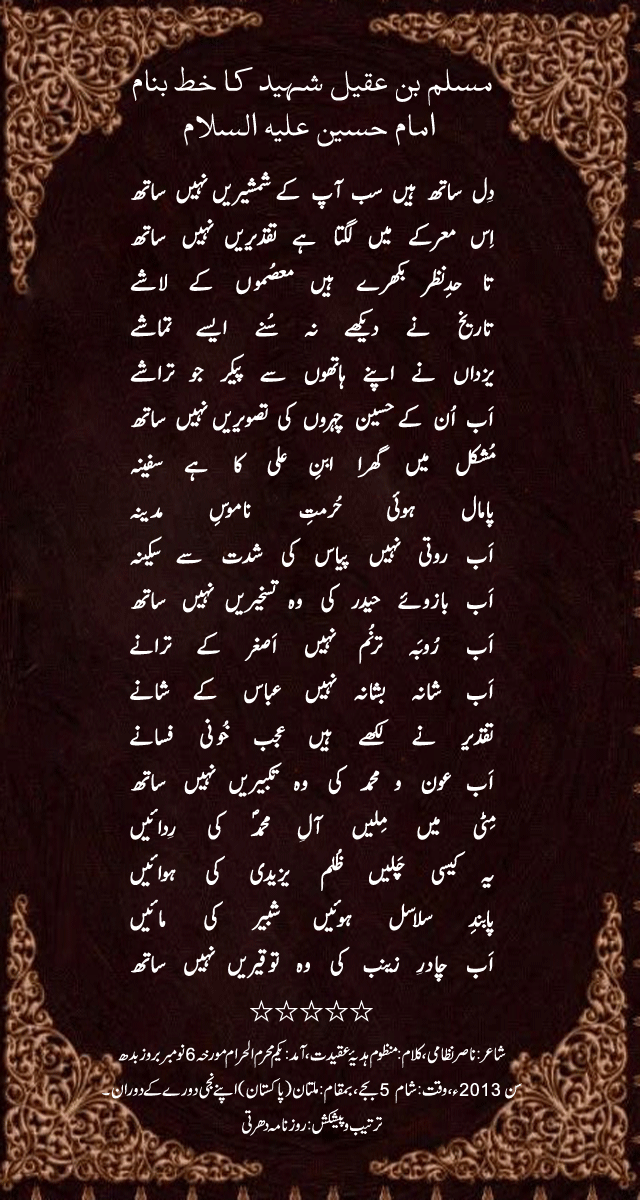 مسلم بن عقیل شہید کا خط بنام
امام حسین علیہ السلام
دِل ساتھ ہیں سب آپ کے شمشیریں نہیں ساتھ
اِس معرکے میں لگتا ہے تقدیریں نہیں ساتھ
تا حدِنظر بکھرے ہیں معصُموں کے لاشے
تاریخ نے دیکھے نہ سُنے ایسے تماشے
یزداں نے اپنے ہاتھوں سے پیکر جو تراشے
اَب اُن کے حسین چہروں کی تصویریں نہیں ساتھ
مُشکل میں گھرا ابنِ علی کا ہے سفینہ
پامال ہوئی حُرمتِ ناموسِ مدینہ
اَب روتی نہیں پیاس کی شدت سے سکینہ
اَب بازوئے حیدر کی وہ تسخیریں نہیں ساتھ
اَب رُوبَہ ترنُم نہیں اَصغر کے ترانے
اَب شانہ بشانہ نہیں عباس کے شانے
تقدیر نے لکھے ہیں عجب خُونی فسانے
اَب عون و محمد کی وہ تکبیریں نہیں ساتھ
مِٹی میں مِلیں آلِ محمدؐ کی رِدائیں
یہ کیسی چَلیں ظُلم یزیدی کی ہوائیں
پابندِ سلاسل ہوئیں شبیر کی مائیں
اَب چادرِ زینب کی وہ توقیریں نہیں ساتھ
☆☆☆☆☆
شاعر:ناصر نظامی،کلام:منظوم ہدیۂ عقیدت،آمد:یکم محرم الحرام مورخہ 6 نومبر بروز بدھ
سن 2013ء،وقت:شام 5 بجے،بمقام:ملتان(پاکستان)اپنے نجی دورے کے دوران۔
ترتیب و پیشکش:روزنامہ دھرتی